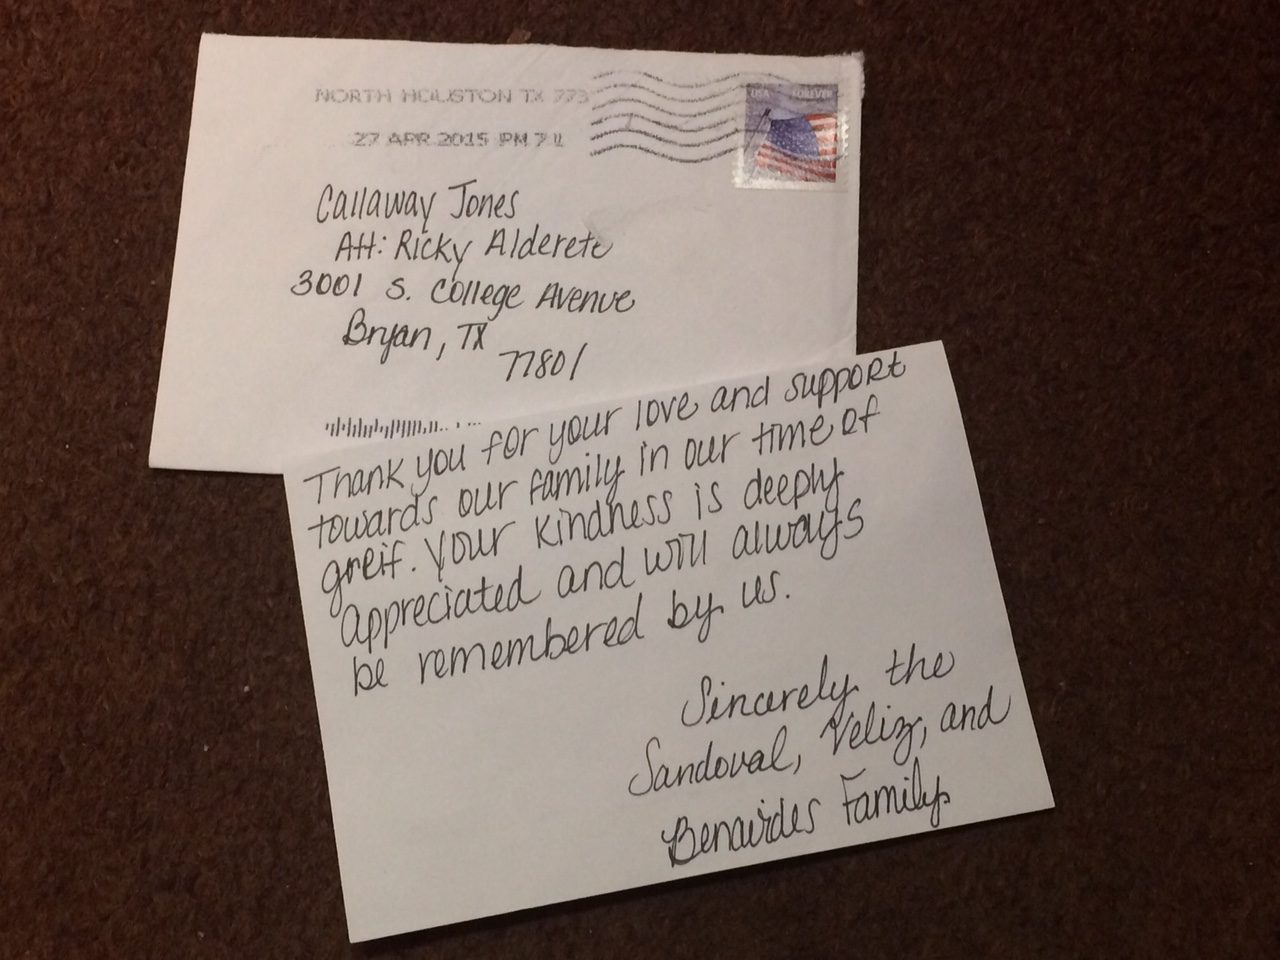 NORTH HOUSTON TX 773
27 APR 2015 PM 7 L
USA FOREVER
Callaway Jones
Att: Ricky Alderete
3001 S. College Avenue
Bryan, TX
77801
Thank you for your love and support
towards our family in our time of
greif. Your kindness is deeply
appreciated and will always
be remembered by us.
Sincerely the
Sandoval, Veliz, and
Benavides Family